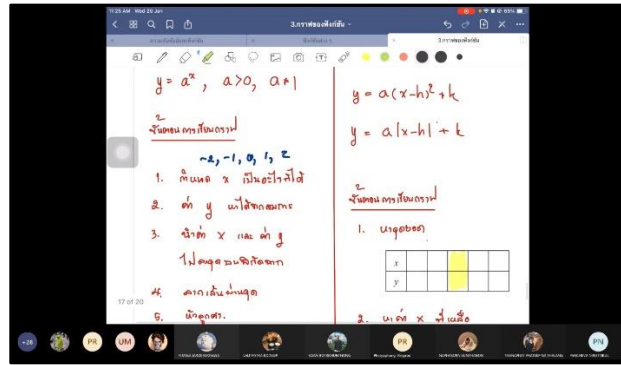 11:25 AM Wed 20 Jan
3.กราฟของฟังก์ชัน
3.กราฟของฟังก์ชัน
y = aˣ, a>0, a≠1
ขั้นตอนการเขียนกราฟ
-2, -1, 0, 1, 2
1. กำหนด x เป็นอะไรก็ได้
2. ค่า y หาได้จากสมการ
3. นำค่า x และ ค่า y
ไปลงจุดบนพิกัดฉาก
4. ลากเส้นผ่านจุด
5. หัวลูกศร.
y = a(x-h)² + k
y = a|x-h| + k
ขั้นตอนการเขียนกราฟ
1. หาจุดยอด
x
y
2. หาค่า x ที่เหลือ
17 of 20
+28
PR
UM
PR
PN